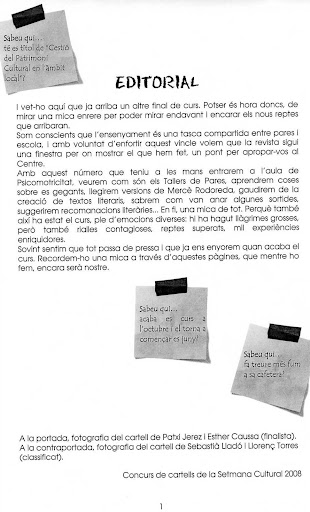 Sabeu qui...
té es títol de "Gestió
del Patrimoni
Cultural en l'àmbit
local"?
EDITORIAL
I vet-ho aquí que ja arriba un altre final de curs. Potser és hora doncs, de
mirar una mica enrere per poder mirar endavant i encarar els nous reptes
que arribaran.
Som conscients que l'ensenyament és una tasca compartida entre pares i
escola, i amb voluntat d'enfortir aquest vincle volem que la revista sigui
una finestra per on mostrar el que hem fet, un pont per apropar-vos al
Centre.
Amb aquest número que teniu a les mans entrarem a l'aula de
Psicomotricitat, veurem com són els Tallers de Pares, aprendrem coses
sobre es gegants, llegirem versions de Mercè Rodoreda, gaudirem de la
creació de textos literaris, sabrem com van anar algunes sortides,
suggerirem recomanacions literàries... En fi, una mica de tot. Perquè també
així ha estat el curs, ple d'emocions diverses: hi ha hagut llàgrimes grosses,
però també rialles contagioses, reptes superats, mil experiències
enriquidores.
Sovint sentim que tot passa de pressa i que ja ens enyorem quan acaba el
curs. Recordem-ho una mica a través d'aquestes pàgines, que mentre ho
fem, encara serà nostre.
Sabeu qui...
acaba es curs a
l'octubre i el torna a
començar es juny?
Sabeu qui...
fa treure més fum
a sa cafetera?
A la portada, fotografia del cartell de Patxi Jerez i Esther Caussa (finalista).
A la contraportada, fotografia del cartell de Sebastià Lladó i Llorenç Torres
(classificat).
Concurs de cartells de la Setmana Cultural 2008
1